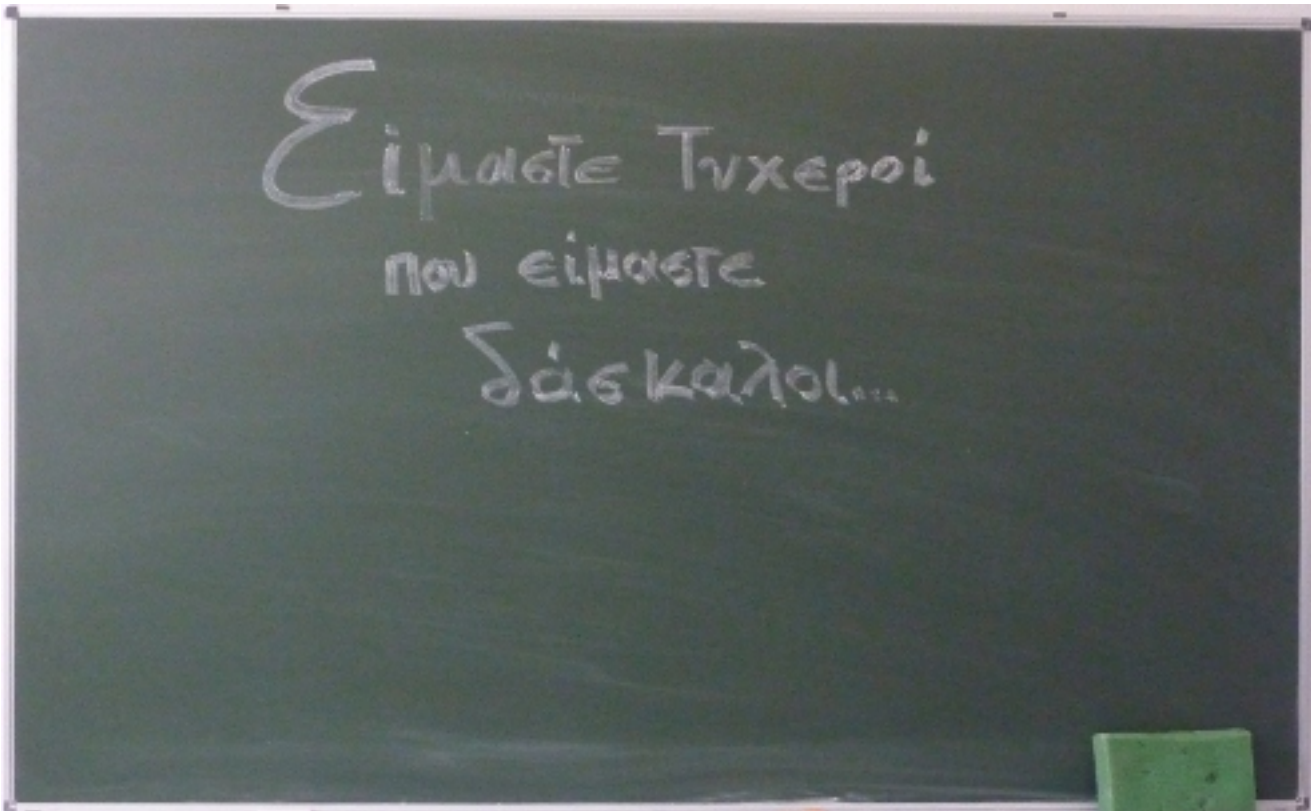 Είμαστε Τυχεροί
που είμαστε
δάσκαλοι...